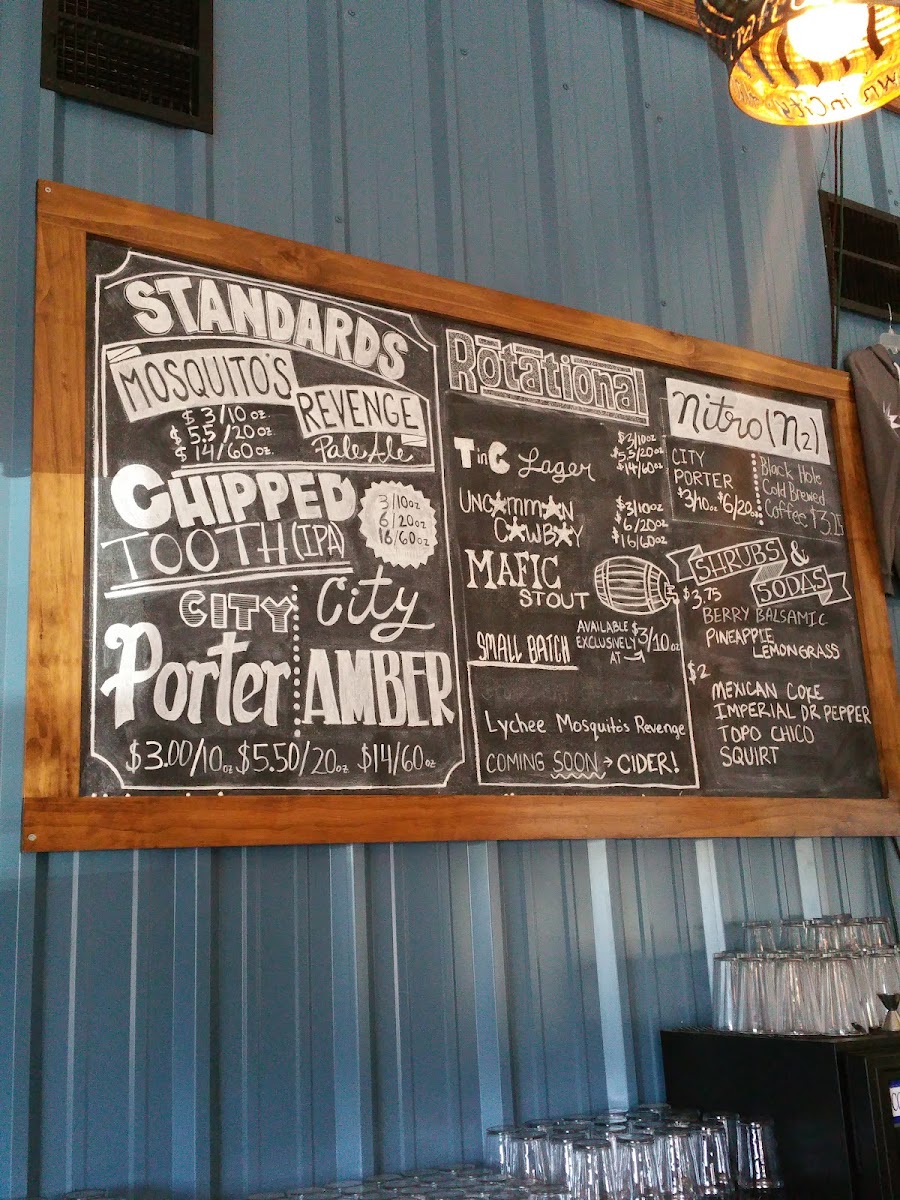 STANDARDS
MOSQUITO'S
REVENGE
Pale Ale
$3/10oz.
$5.5/20oz.
$14/60oz.
CHIPPED
TOOTH (IPA)
3/10oz
6/20oz
16/60oz
CITY
Porter
City
AMBER
$3.00/10oz $5.50/20oz $14/60oz
Rotational
TinC Lager
$3/10oz
$5.5/20oz
$14/60oz
UNC★MM★N
C★WB★Y
$3/10oz
$6/20oz
$16/60oz
MAFIC
STOUT
SMALL BATCH
AVAILABLE
EXCLUSIVELY
AT →
$3/10oz
Lychee Mosquito's Revenge
COMING SOON → CIDER!
Nitro (N2)
CITY
PORTER
$3/10oz $6/20oz
Black Hole
Cold Brewed
Coffee $3.25
SHRUBS &
SODAS
$3.75
BERRY BALSAMIC
PINEAPPLE
LEMONGRASS
$2
MEXICAN COKE
IMPERIAL DR PEPPER
TOPO CHICO
SQUIRT